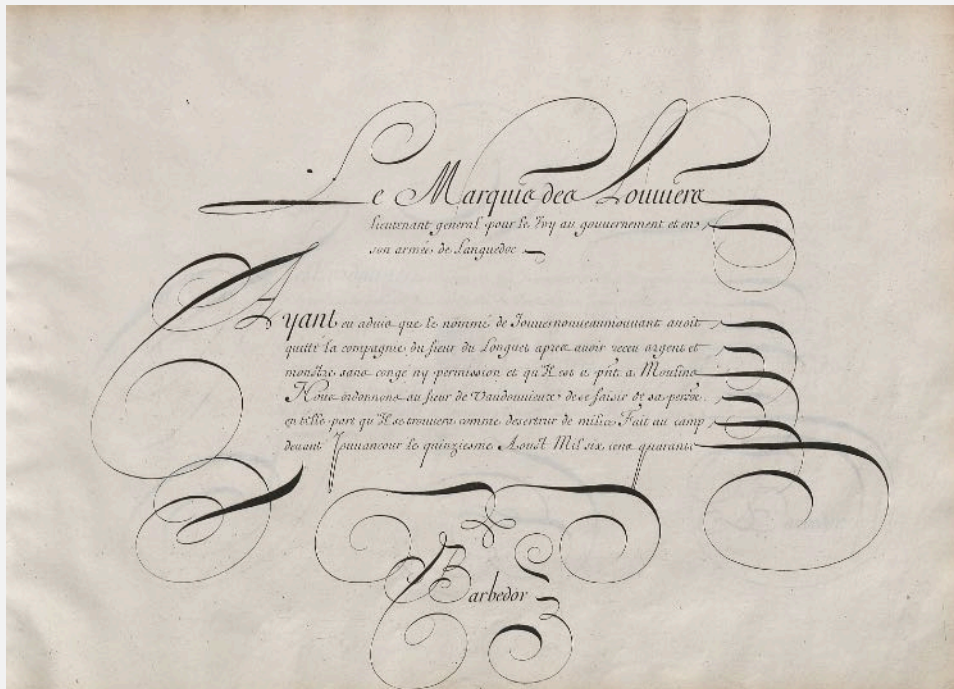 Le Marquis des Louuiers
lieutenant general pour le Roy au gouuernement et en
son armée de Languedoc
Ayant eu aduis que le nommé de auoit
quitté la compagnie du sieur du Longuet apres auoir receu argent et
monstre sans congé ny permission et qu'Il est a Moulins
Nous ordonnons au sieur de de se saisir de sa
en telle part qu'Il se trouuera comme deserteur de milice Fait au camp
deuant Jouuancour le quinziesme Aoust Mil six cens quarante
Barbedor